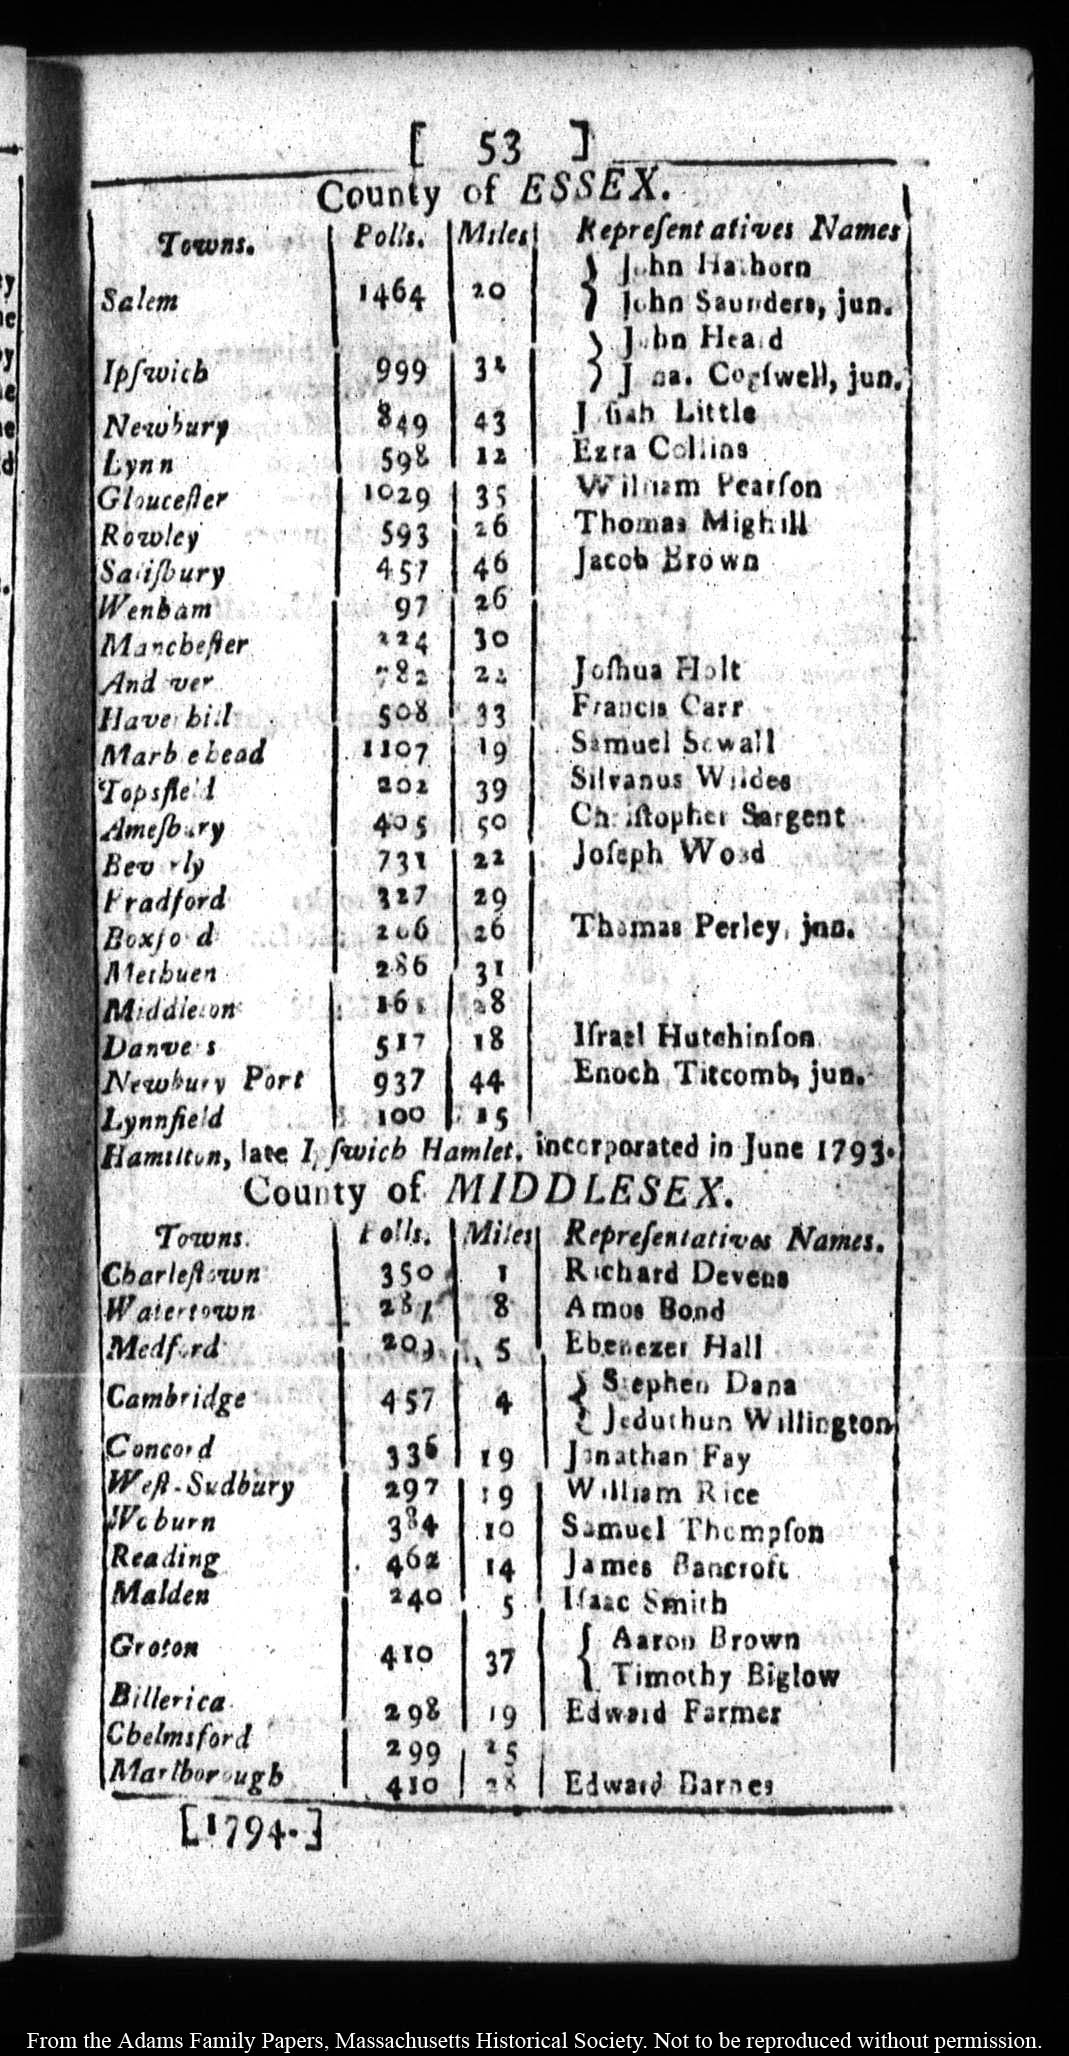 [ 53 ]
County of ESSEX.
Towns. Polls. Miles Repreſentatives Names
John Hathorn
Salem 1464 20 John Saunders, jun.
John Heard
Ipſwich 999 32 Jona. Cogſwell, jun.
Newbury 849 43 Joſiah Little
Lynn 598 12 Ezra Collins
Glouceſter 1029 35 William Pearſon
Rowley 593 26 Thomas Mighill
Saliſbury 457 46 Jacob Brown
Wenham 97 26
Mancheſter 224 30
Andover 782 22 Joſhua Holt
Haverhill 508 33 Francis Carr
Marblehead 1107 19 Samuel Sewall
Topsfield 202 39 Silvanus Wildes
Ameſbury 405 50 Chriſtopher Sargent
Beverly 731 22 Joſeph Wood
Bradford 327 29
Boxford 206 26 Thomas Perley, jun.
Methuen 286 31
Middleton 161 28
Danvers 517 18 Iſrael Hutchinſon
Newbury Port 937 44 Enoch Titcomb, jun.
Lynnfield 100 15
Hamilton, late Ipſwich Hamlet, incorporated in June 1793.
County of MIDDLESEX.
Towns. Polls. Miles Repreſentatives Names.
Charleſtown 350 1 Richard Devens
Watertown 287 8 Amos Bond
Medford 209 5 Ebenezer Hall
Cambridge 457 4 Stephen Dana
Jeduthun Willington
Concord 336 19 Jonathan Fay
Weſt-Sudbury 297 19 William Rice
Woburn 384 10 Samuel Thompſon
Reading 462 14 James Bancroft
Malden 240 5 Iſaac Smith
Groton 410 37 Aaron Brown
Timothy Biglow
Billerica 298 19 Edward Farmer
Chelmsford 299 25
Marlborough 410 28 Edward Barnes
[1794.]
From the Adams Family Papers, Massachusetts Historical Society. Not to be reproduced without permission.